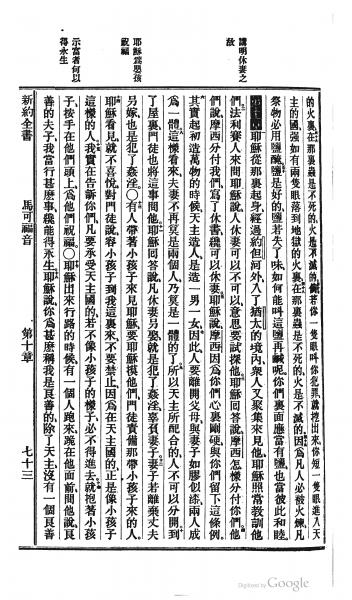 講明休妻之
故
耶穌爲嬰孩
祝福
示富者何以
得永生
的火裏在那裏蟲是不死的火是不滅的倘若你一隻眼叫你犯罪就挖出來你短一隻眼進入天
主的國强如有兩隻眼落到地獄的火裏在那裏蟲是不死的火是不滅的因爲凡人必被火煉凡
祭物必用鹽醃鹽是好的鹽若失了味如何能叫這鹽再鹹呢你們裏面應當有鹽也當彼此和睦
第十章耶穌從那裏起身經過約但河外入了猶太的境內衆人又聚集來見他耶穌照常教訓他
們法利賽人來問耶穌說人休妻可以不可以意思要試探他耶穌回答說摩西怎樣分付你們他
們說摩西分付我們寫了休書纔可以休妻耶穌說摩西因爲你們心裏剛硬與你們留下這條例
其實起初造萬物的時候天主造人是造一男一女因此人要離開父母與妻子如膠似漆兩人成
爲一體這樣看來夫妻不再算是兩個人乃算是一體的了所以天主所配合的人不可以分開到
了屋裏門徒也將這事問他耶穌回答說凡休妻另娶就是犯了姦淫辜負妻子妻子若離棄丈夫
另嫁也是犯了姦淫○有人帶著小孩子來見耶穌要耶穌摸他們門徒責備那帶小孩子來的人
耶穌看見就不喜悅對門徒說容小孩子到我這裏來不要禁止因爲在天主國的正是像小孩子
這樣的人我實在告訴你們凡要承受天主國的若不像小孩子的樣子必不得進去就抱著小孩
子按手在他們頭上爲他們祝福○耶穌出來行路的時候有一個人跑來跪在他面前問他說良
善的夫子我當行甚麽事纔能得永生耶穌說你爲甚麽稱我是良善的除了天主沒有一個良善
新約全書 馬可福音 第十章 七十三
Digitized by Google